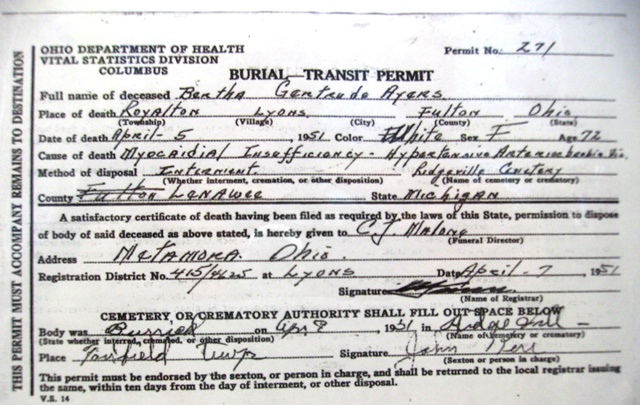 OHIO DEPARTMENT OF HEALTH
VITAL STATISTICS DIVISION
COLUMBUS
Permit No. 271
BURIAL-TRANSIT PERMIT
Full name of deceased Bertha Gertrude Ayers
Place of death Royalton Lyons Fulton Ohio
(Township) (Village) (City) (County) (State)
Date of death April - 5, 1951 Color White Sex F Age 72
Cause of death Myocaidial Insufficiency - Hypertensive
Method of disposal Interment Ridgeville Cemetery
(Whether interment, cremation, or other disposition) (Name of cemetery or crematory)
County Fulton Lenawee State Michigan
A satisfactory certificate of death having been filed as required by the laws of this State, permission to dispose
of body of said deceased as above stated, is hereby given to C.J. Malone
(Funeral Director)
Address Metamora Ohio.
Registration District No. 415/4625 at Lyons Date April - 7, 1951
Signature
(Name of Registrar)
CEMETERY, OR CREMATORY AUTHORITY SHALL FILL OUT SPACE BELOW
Body was Burried on Apr 8, 1951 in
(State whether interred, cremated, or other disposition) (Name of cemetery or crematory)
Place Fairfield Twp Signature John
(Sexton or person in charge)
This permit must be endorsed by the sexton, or person in charge, and shall be returned to the local registrar issuing
the same, within ten days from the day of interment, or other disposal.
V.S. 14
THIS PERMIT MUST ACCOMPANY REMAINS TO DESTINATION